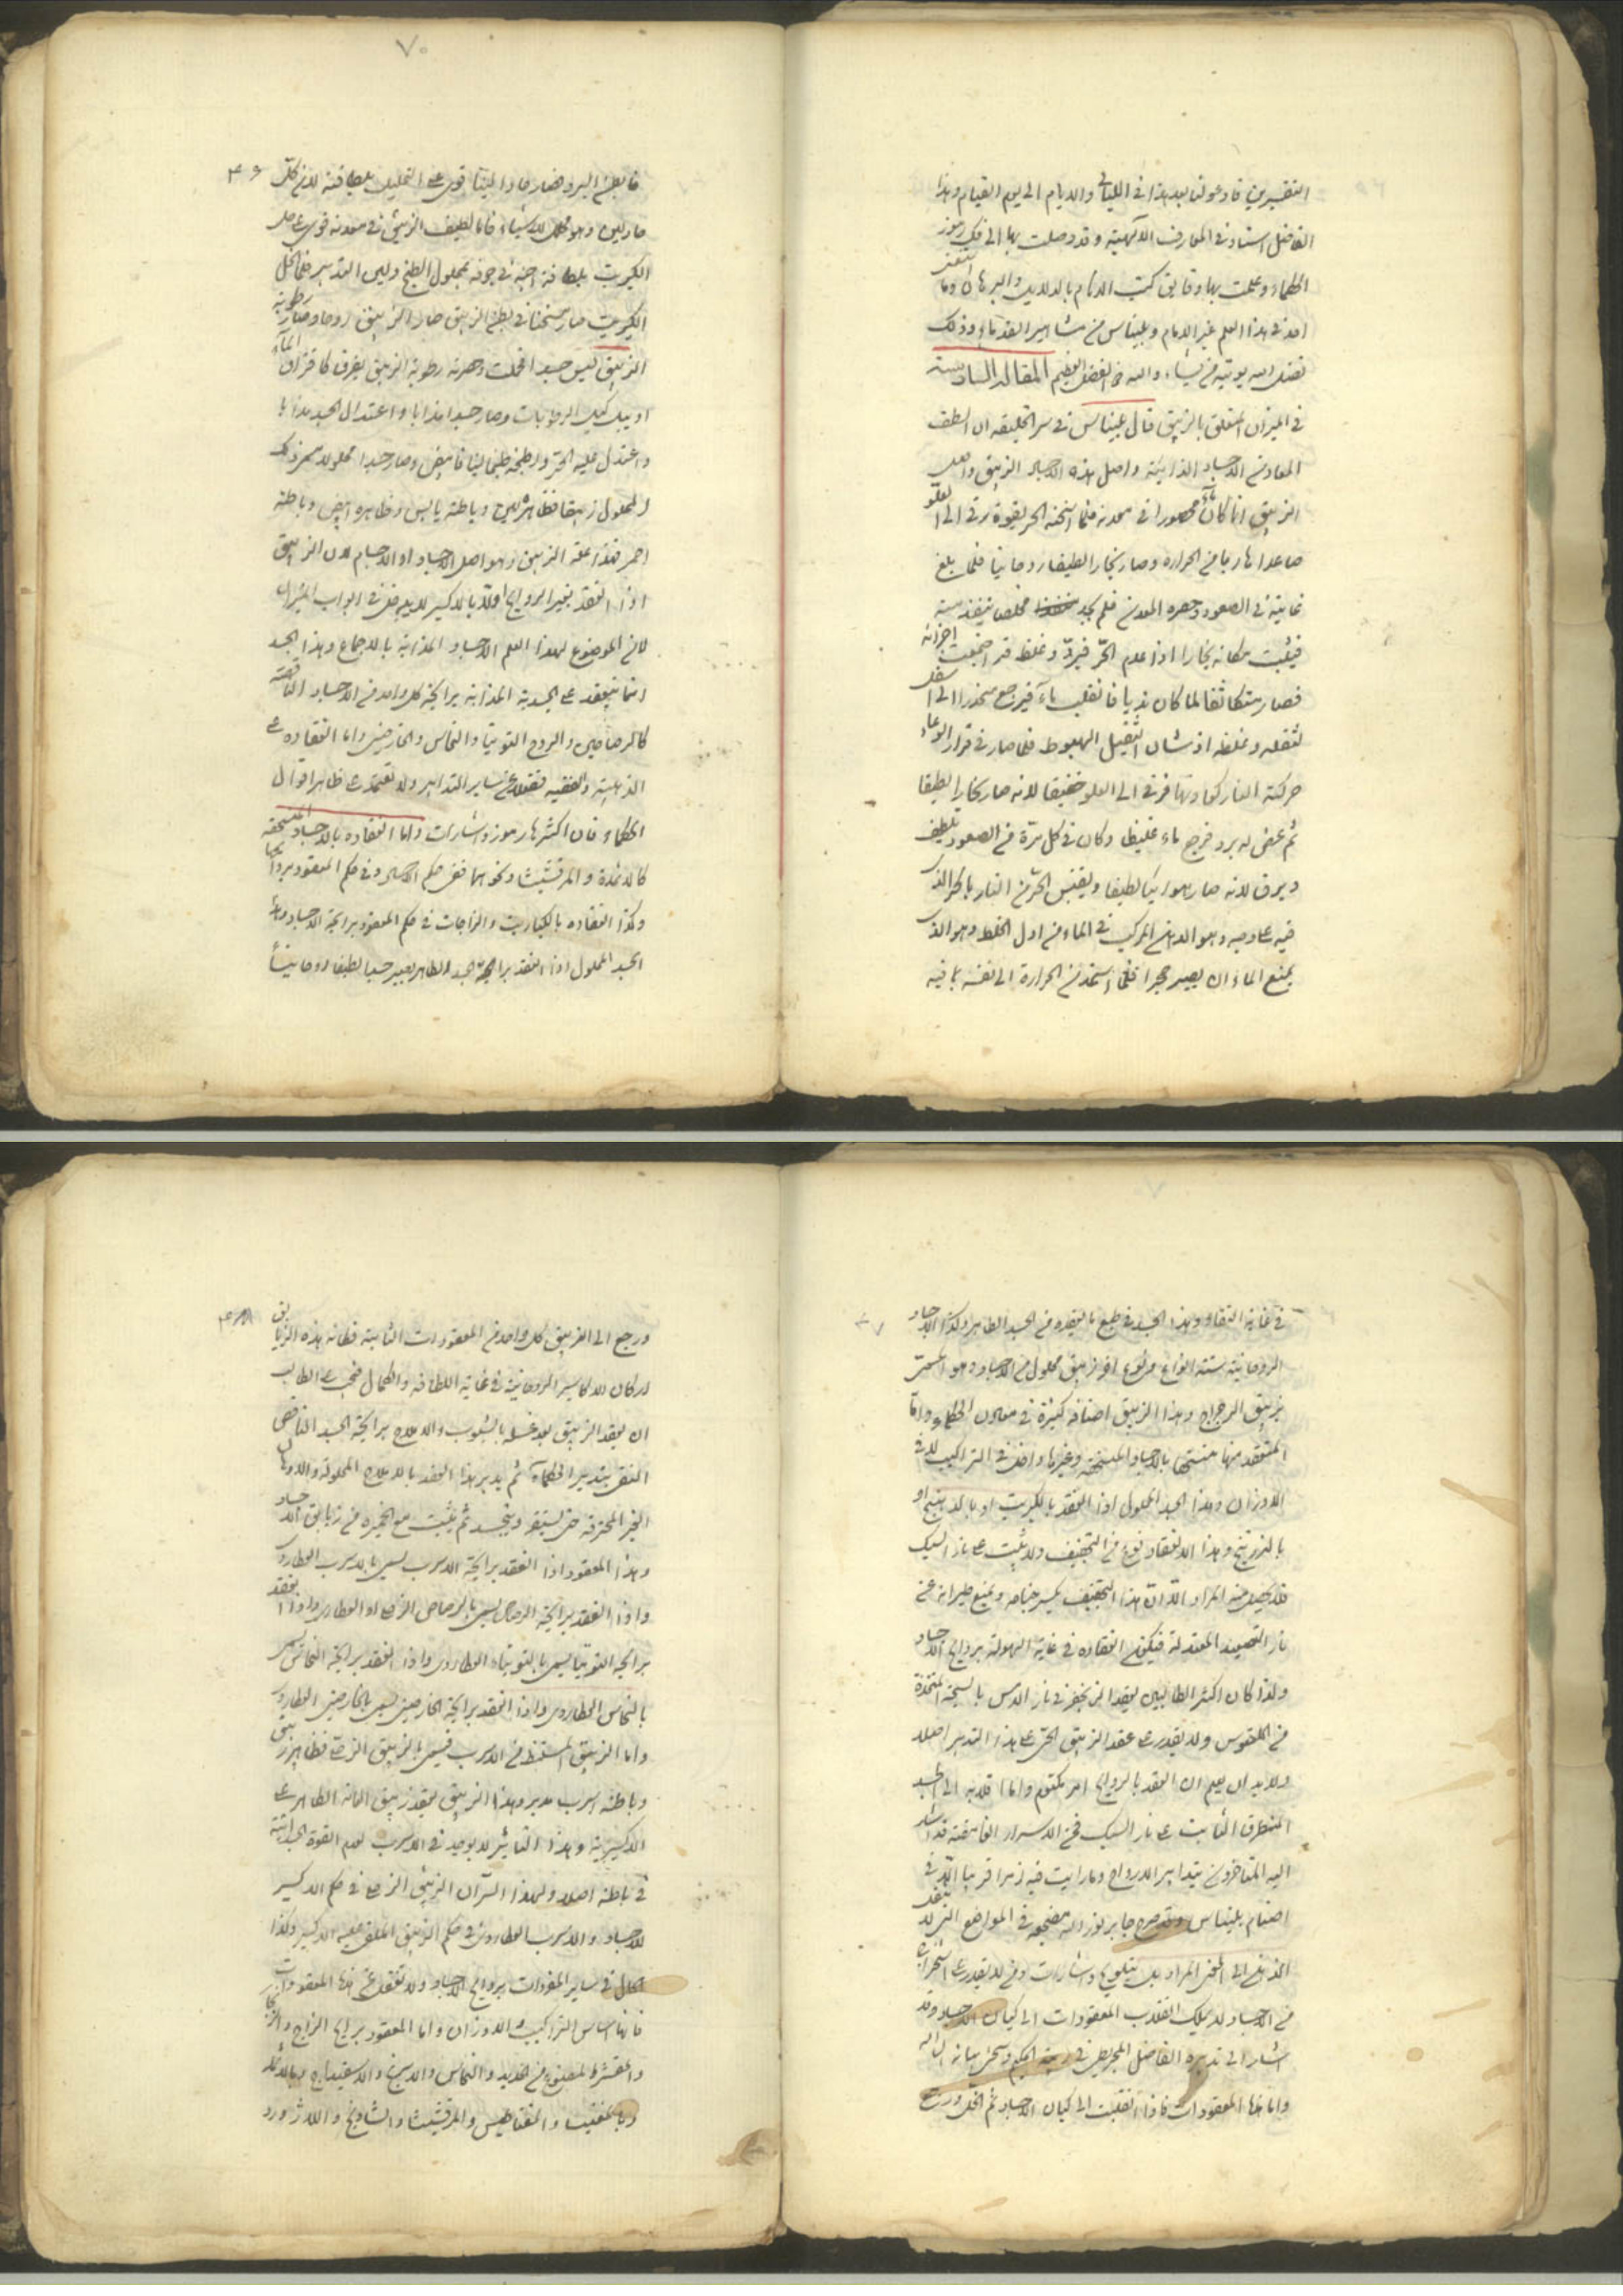 التقصير من فادعو لنا بعد هذا في الليالي والايام الى يوم القيام وهذا
الفاضل استاد في المعارف الالهية وقد وصلت بها الى فك رموز
الحكماء وعملت بها دقايق كتب الامام بالدلايل والبرهان وما
احد في هذا العلم غير الامام وبليناس من مشاهير القدماء وذلك
فضل الله يوتيه من يشاء والله ذو الفضل العظيم المقالة السادسة
في الميزان المتعلق بالزيبق قال بليناس في سر الخليقة ان الطف
المعادن الاجساد الذائبة واصل هذه الاجساد الزيبق واصل
الزيبق انما كان ماء محصورا في معدنه فلما اسخنه الحر بقوة رقى الى العلو
صاعدا هاربا من الحرارة وصار بخارا لطيفا روحانيا فلما بلغ
غايته في الصعود وحصره المعدن فلم يجد مخلصا ينفذ منه
فيثبت مكانه بخارا اذا عدم الحر فبرد وغلظ فاجتمعت اجزائه
فصار متكاثفا لما كان نديا فانقلب ماء فيرجع منحدرا الى اسفل
لثقله وغلظه اذ شان الثقيل الهبوط فلما صار في قرار الوعاء
حركته النار كعادتها فرقى الى العلو خفيفا لانه صار بخارا لطيفا
ثم عرض له برد فرجع ماء غليظا وكان في كل مرة من الصعود يلطف
ويرق لانه صار هوائيا لطيفا ويقتبس الحر من النار بالحر الذي
فيه على وجه وهو الدهن المركب في الماء من اول الخلط وهو الذي
يمنع الماء ان يصير حجرا فلما استمد من الحرارة الى نفسه بما فيه
٧٠
٤٦
فابطن البرد فصار حارا لينا قوي على التحليل بلطافته لان كل
حار لين وهو محلل للاشياء فانما لطيف الزيبق في معدنه قوى على حل
الكبريت بلطافته اجنه في جوفه بمحلول الطبخ ولين التدبير فلما انحل
الكبريت صار مستجنا في بطن الزيبق صار الزيبق روحا وصار رطوبة
الزيبق ليس جسد انحلت وحصرته رطوبة الزيبق بغرق كاغراق الماء
او يبلل الرطوبات وصار جسدا مذابا واعتدل الجسد مذابا
واعتدل عليه الحر وانطبخه طبخا لينا فابيض وصار جسدا محلولا سمي ذلك
المحلول زيبقا فظاهره لين وباطنه يابس وظاهره ابيض وباطنه
احمر فهذا علة الزيبق وهو اصل الاجساد او الاجسام لان الزيبق
اذا انعقد بغير الروايح اولا بالاكسير لا يدخل في ابواب الميزان
لان الموضوع لهذا العلم الاجساد المذابة بالاجماع وهذا الجسد
انما ينعقد على الجسدية المذابة برايحة كل واحد من الاجساد الناقصة
كالرصاصين والروح التوتيا والنحاس والخارصيني واما انعقاده على
الذهبية والفضية فنقول عن ساير التدابير ولا تعتمد على ظاهر اقوال
الحكماء فان اكثرها رموز واشارات واما انعقاده بالاجساد المنسحقة
كالاثمد والمرقشيثا ونحوهما ففي حكم الاجساد وفي حكم المعقود بروايحها
وكذا انعقاده بالكباريت والزاجات في حكم المعقود برايحة الاجساد وهذا
الجسد المحلول اذا انعقد برايحة الجسد الطاهر يصير جسدا لطيفا روحانيا
٤٧
في غاية النقاء وهذا الجسد في طبع ما ينعقد من الجسد الطاهر ولكن الاجساد
الروحانية ستة انواع ونوع اخر زيبق محلول من الاجساد وهو المسمى
بزيبق الرجراج وهذا الزيبق اصنافه كثيرة في معادن الحكماء واما
المنعقد منها منتجها بالاجساد المنسحقة وغيرها داخل في التراكيب لا في
الاوزان وهذا الجسد المحلول اذا انعقد بالكبريت او بالرهج او
بالزرنيخ وهذا الانعقاد نوع من التجفيف ولا يثبت على نار السبك
فلا يحصل منه المراد الا ان هذا التجفيف يكسر جناحه ويمنع طيرانه عن
نار التصعيد المعتدلة فيكون انعقاده في غاية السهولة بروايح الاجساد
ولذا كان اكثر الطالبين يعقد الزنجفر في نار الدس بالسبيكة المتخذة
من القلقوس ولا يقدر على عقد الزيبق الحي على هذا التدبير اصلا
ولا بد ان يعلم ان العقد بالروايح امر مكتوم واما انقلابه الى الجسد
المنطرق الثابت على نار السبك فمن الاسرار الغامضة قد اشار
اليه المتاخرون بتدابير الارواح وما رايت فيه رمزا قريبا الا في
اصنام بليناس وقد صرح جابر بوزانه بمضجعه في المواضع التي لا تنقل
الذهن الى المعنى المراد بل بتلويح واشارات ومن لا يقدر على استخراجه
من الاجساد لا يملك انقلاب المعقودات الى كيان الاجساد وقد
اشار الى تدبيره الفاضل المجريطي في رتبة الحكيم وسيجئ بيانه ان شاء الله
واما هذه المعقودات فاذا انقلبت الى كيان الاجساد ثم انحل ورجع
٤٨
ورجع الى الزيبق كل واحد من المعقودات الثابتة فكانه هذه الزيابق
اركان الاكاسير الروحانية في غاية اللطافة والكمال فيجب على الطالب
ان يعقد الزيبق بعد غسله بالشبوب والاملاح برايحة الجسد الناقص
النقي بتدبير الحكماء ثم يدبر هذا العقد بالاملاح المحلولة والادهان
الغير المحترقة حتى يستقر وينجسد ثم يثبت مع الخميرة من زيابق الاجساد
وهذا المعقود اذا انعقد برايحة الاسرب يسمى بالاسرب العطاردي
واذا انعقد برايحة الرصاص يسمى بالرصاص الزيبقي او العطاردي واذا انعقد
برايحة التوتيا يسمى بالتوتياء العطاردي واذا انعقد برايحة النحاس يسمى
بالنحاس العطاردي واذا انعقد برايحة الخارصيني يسمى بالخارصيني العطاردي
واما الزيبق المستنبط من الاسرب فيسمى بالزيبق الزيبقي فظاهره زيبق
وباطنه اسرب مدبر وهذا الزيبق يعقد زيبق العامة الطاهر على
الاكسيرية وهذا التاثير لا يوجد في الاسرب لعدم القوة الجسدانية
في باطنه اصلا ولهذا السر ان الزيبق الزيبقي في حكم الاكسير
للاجساد والاسرب العطاردي في حكم الزيبق الملقى عليه الاكسير وكذا
الحال في ساير المعقودات بروايح الاجساد ولا تغفل عن هذه المعقودات
فانها اساس التراكيب والاوزان واما المعقود بروايح الزاج والزنجار
والقشور المصنوع من الحديد والنحاس والاسرنج والاسفيداج وبالاثمد
وبالمغنيسا والمغناطيس والمرقشيثا والشادنج واللازورد